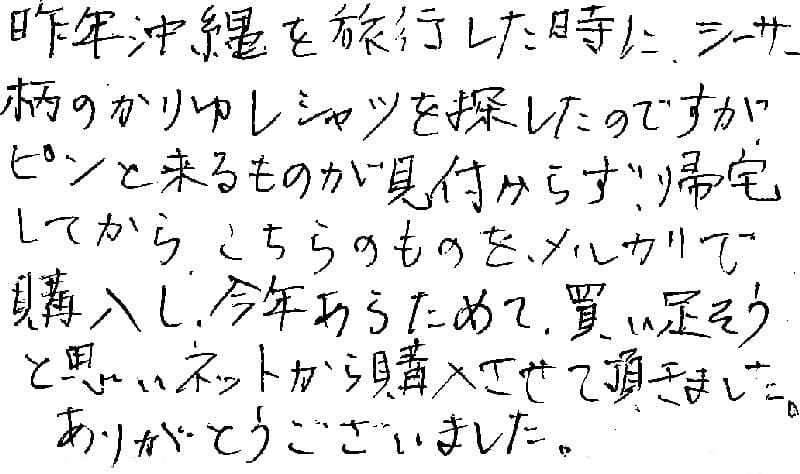 昨年沖縄を旅行した時に、シーサー
柄のかりゆしシャツを探したのですが
ピンと来るものが見付からず、帰宅
してから こちらのものを、メルカリで
購入し、今年あらためて、買い足そう
と思いネットから購入させて頂きました。
ありがとうございました。